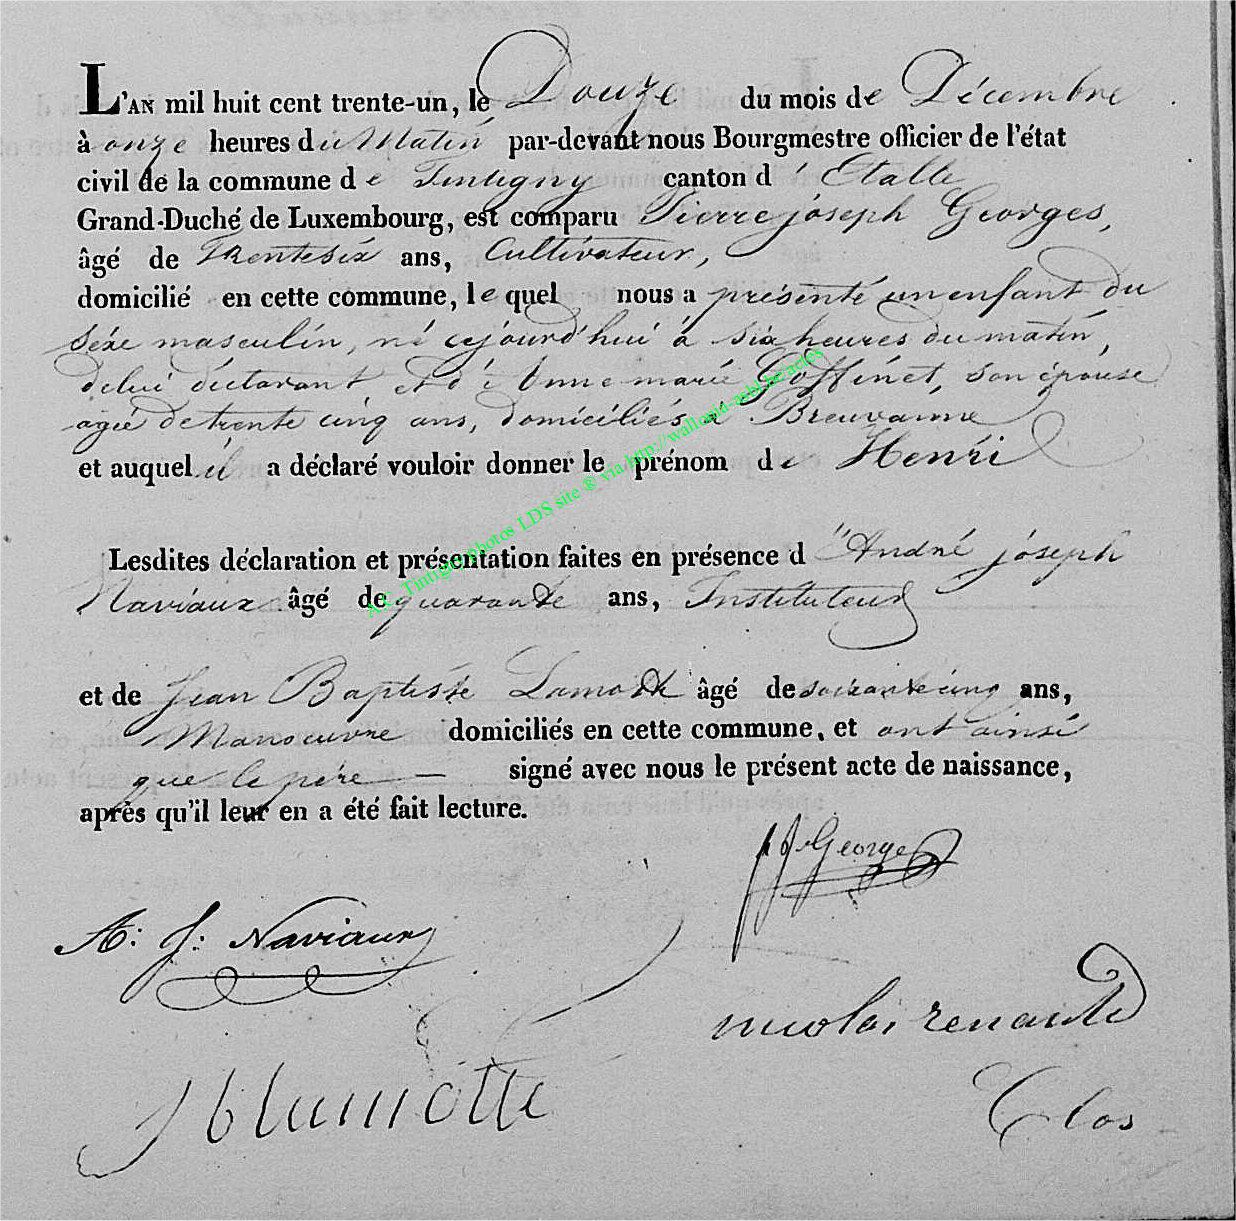 L'AN mil huit cent trente-un, le Douze du mois de Décembre
à onze heures du Matin par-devant nous Bourgmestre officier de l'état
civil de la commune de Tintigny canton d'Etalle
Grand-Duché de Luxembourg, est comparu Pierre joseph Georges,
âgé de Trentesix ans, Cultivateur,
domicilié en cette commune, lequel nous a présenté un enfant du
séxe masculin, né cejourd'hui à six heures du matin,
de lui déclarant et d'Anne marie Goffinet, son épouse
agée de trente cinq ans, domiciliés à Breuvanne
et auquel il a déclaré vouloir donner le prénom de Henri
Lesdites déclaration et présentation faites en présence d'André joseph
Naviaux âgé de quarante ans, Instituteur
et de Jean Baptiste Lamotte âgé de soixante cinq ans,
Manoeuvre domiciliés en cette commune, et ont ainsi
que le père — signé avec nous le présent acte de naissance,
après qu'il leur en a été fait lecture.
A.C. Tintigny photos LDS site ® via http://wallonia-asbl.be/actes
pj George
A: J: Naviaux
nicolas renauld
J b lamotte
Clos